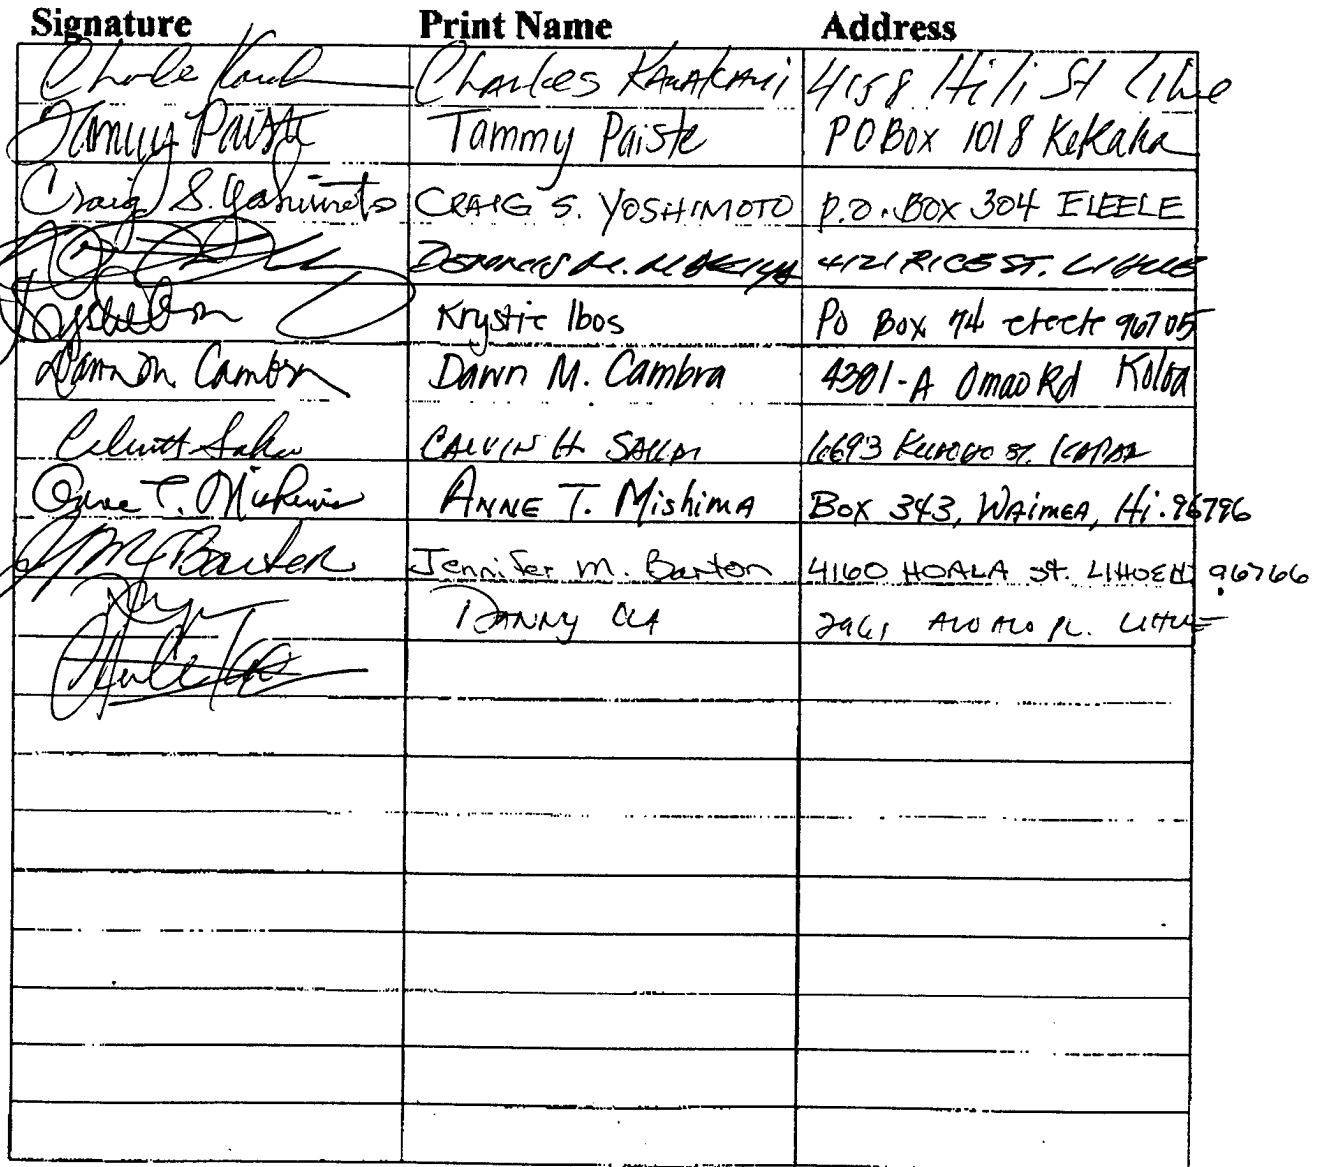 Signature Print Name Address
Charles Kawakami 4158 Hili St Lihue
Tammy Paiste Tammy Paiste PO Box 1018 Kekaha
Craig S. Yoshimoto CRAIG S. YOSHIMOTO P.O. BOX 304 ELEELE
DENNIS M. 4121 RICE ST. LIHUE
Krystie Ibos Po Box 74 eleele 96705
Dawn M. Cambra Dawn M. Cambra 4301-A Omao Rd Koloa
CALVIN H. SAKAI ST. KAPAA
Anne T. Mishima ANNE T. Mishima Box 343, WAIMEA, Hi. 96796
JM Barton Jennifer M. Barton 4160 HOALA st. LIHUE HI 96766
DANNY PL. LIHUE